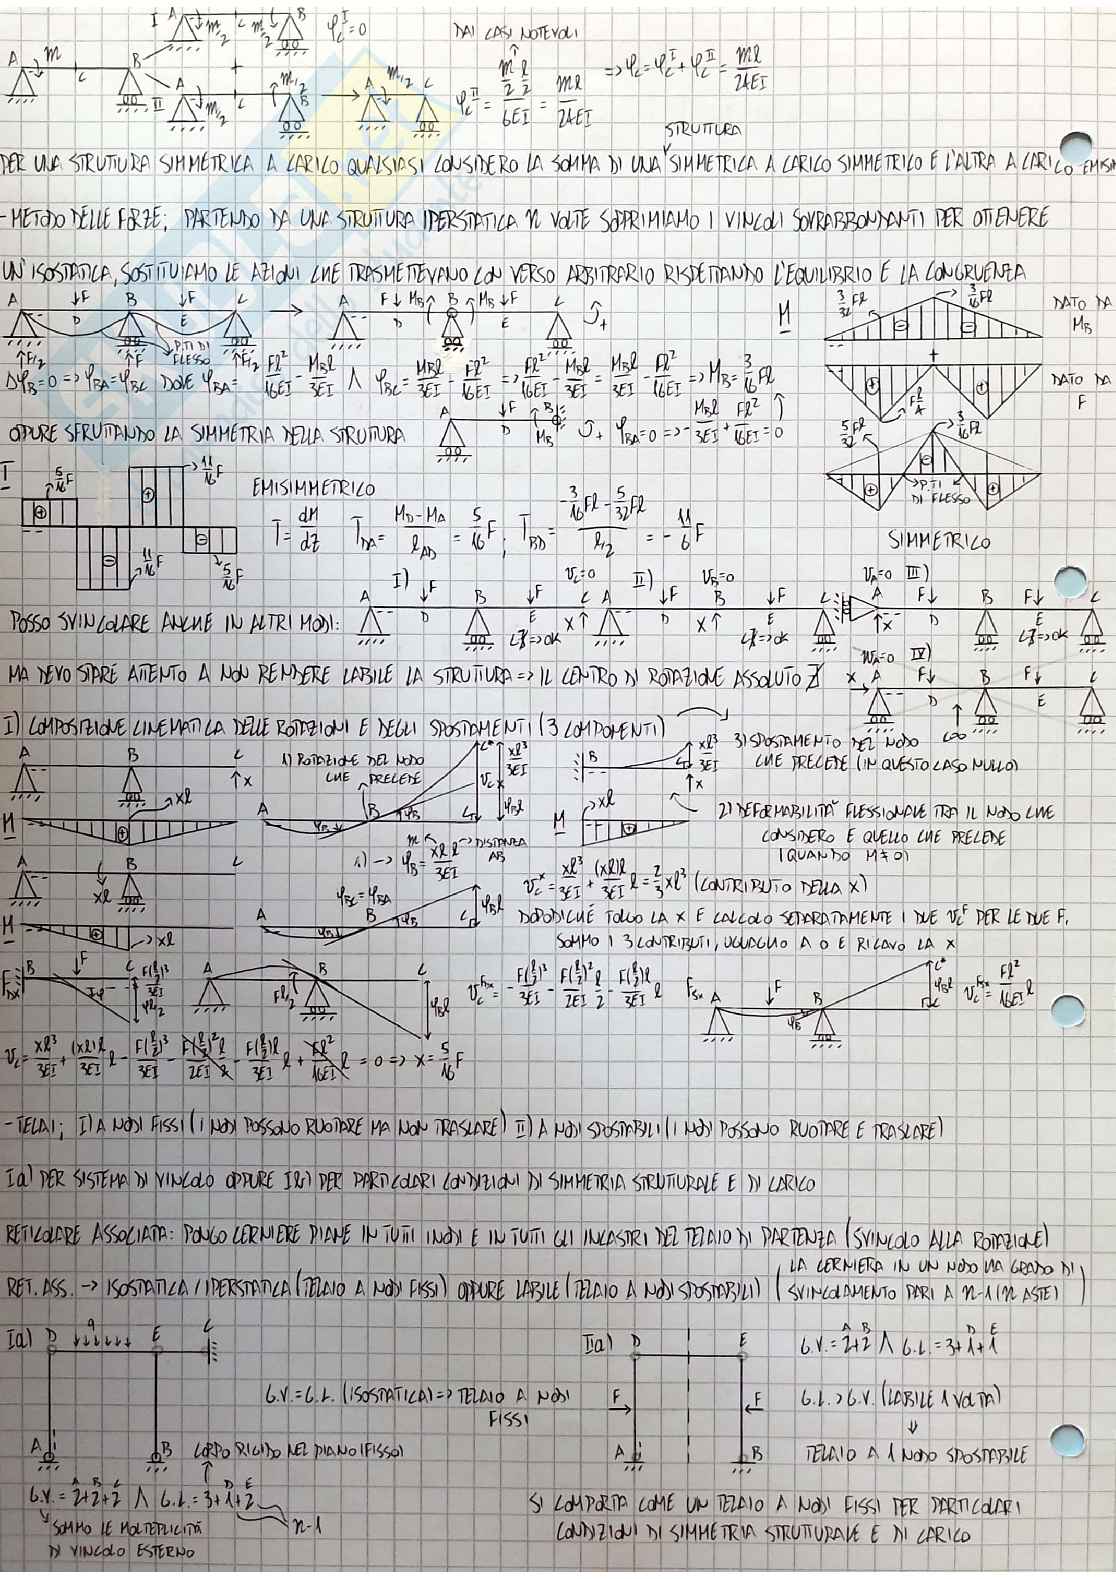 I A m/2 C m/2 B φ_C^I=0
DAI CASI NOTEVOLI
A m C B
+
II A m/2 m/2 B → A m/2 C
φ_C^II = (m/2 · l/2)/6EI = ml/24EI
⇒ φ_C=φ_C^I+φ_C^II = ml/24EI
STRUTTURA
PER UNA STRUTTURA SIMMETRICA A CARICO QUALSIASI CONSIDERO LA SOMMA DI UNA SIMMETRICA A CARICO SIMMETRICO E L'ALTRA A CARICO EMISIM
- METODO DELLE FORZE: PARTENDO DA UNA STRUTTURA IPERSTATICA n VOLTE SOPPRIMIAMO I VINCOLI SOVRABBONDANTI PER OTTENERE
UN'ISOSTATICA, SOSTITUIAMO LE AZIONI CHE TRASMETTEVANO CON VERSO ARBITRARIO RISPETTANDO L'EQUILIBRIO E LA CONGRUENZA
A ↓F B ↓F C
D E
P.TI DI FLESSO
↑F/2 ↑F ↑F/2
A F↓ M_B B M_B ↓F C
D E
M 3/32 Fl 3/16 Fl DATO DA M_B
+
F l/4 DATO DA F
Δφ_B=0 ⇒ φ_BA=φ_BC DOVE φ_BA= Fl²/16EI - M_Bl/3EI ∧ φ_BC= M_Bl/3EI - Fl²/16EI ⇒ Fl²/16EI - M_Bl/3EI = M_Bl/3EI - Fl²/16EI ⇒ M_B= 3/16 Fl
OPPURE SFRUTTANDO LA SIMMETRIA DELLA STRUTTURA
A ↓F D B M_B
φ_BA=0 ⇒ - M_Bl/3EI + Fl²/16EI = 0
5/32 Fl 3/16 Fl
P.TI DI FLESSO
SIMMETRICO
T 5/16 F 11/16 F
11/16 F 5/16 F
EMISIMMETRICO
T= dM/dz T_DA= (M_D-M_A)/l_AD = 5/16 F ; T_BD= (-3/16 Fl - 5/32 Fl)/(l/2) = - 11/6 F
POSSO SVINCOLARE ANCHE IN ALTRI MODI:
I) A ↓F D B ↓F E C v_C=0 x↑ C∄⇒OK
II) A ↓F D B v_B=0 x↑ ↓F E C C∄⇒OK
III) v_A=0 A ↑x F↓ D B F↓ E C C∄⇒OK
IV) w_A=0 x→ A F↓ D B F↓ E C C∞
MA DEVO STARE ATTENTO A NON RENDERE LABILE LA STRUTTURA ⇒ IL CENTRO DI ROTAZIONE ASSOLUTO ∄
I) COMPOSIZIONE CINEMATICA DELLE ROTAZIONI E DEGLI SPOSTAMENTI (3 COMPONENTI)
A B C ↑x
M xl
1) ROTAZIONE DEL NODO CHE PRECEDE
A B φ_B φ_B C C* xl³/3EI v_C^x φ_Bl
B C xl³/3EI ↑x
M xl
3) SPOSTAMENTO DEL NODO CHE PRECEDE (IN QUESTO CASO NULLO)
2) DEFORMABILITÀ FLESSIONALE TRA IL NODO CHE CONSIDERO E QUELLO CHE PRECEDE (QUANDO M≠0)
1) → φ_B= xl l/3EI m DISTANZA AB
A xl B C
M xl
φ_BC=φ_BA
A φ_B B φ_B C φ_Bl
v_C^x= xl³/3EI + (xl)l/3EI l = 2/3 xl³ (CONTRIBUTO DELLA x)
DOPODICHÉ TOLGO LA x E CALCOLO SEPARATAMENTE I DUE v_C^F PER LE DUE F,
SOMMO I 3 CONTRIBUTI, UGUAGLIO A 0 E RICAVO LA x
F_DX B ↓F C F(l/2)³/3EI φ l/2
A F l/2 B C φ_Bl
v_C^F_DX= - F(l/2)³/3EI - F(l/2)²/2EI l/2 - F(l/2)l/3EI l
F_SX A ↓F B φ_B C C* φ_Bl v_C^F_SX= Fl²/16EI l
v_C= xl³/3EI + (xl)l/3EI l - F(l/2)³/3EI - F(l/2)²/2EI l/2 - F(l/2)l/3EI l + Fl²/16EI l = 0 ⇒ x= 5/16 F
- TELAI: I) A NODI FISSI (I NODI POSSONO RUOTARE MA NON TRASLARE) II) A NODI SPOSTABILI (I NODI POSSONO RUOTARE E TRASLARE)
Ia) PER SISTEMA DI VINCOLO OPPURE Ib) PER PARTICOLARI CONDIZIONI DI SIMMETRIA STRUTTURALE E DI CARICO
RETICOLARE ASSOCIATA: PONGO CERNIERE PIANE IN TUTTI I NODI E IN TUTTI GLI INCASTRI DEL TELAIO DI PARTENZA (SVINCOLO ALLA ROTAZIONE)
RET. ASS. → ISOSTATICA/IPERSTATICA (TELAIO A NODI FISSI) OPPURE LABILE (TELAIO A NODI SPOSTABILI) (LA CERNIERA IN UN NODO HA GRADO DI
SVINCOLAMENTO PARI A n-1 (n ASTE))
Ia) D q E C
A B
G.V.=G.L. (ISOSTATICA) ⇒ TELAIO A NODI FISSI
CORPO RIGIDO NEL PIANO (FISSO)
A B C D E
G.V.=2+2+2 ∧ G.L.=3+1+2
n-1
SOMMO LE MOLTEPLICITÀ
DI VINCOLO ESTERNO
IIa) D E
F F
A B
A B D E
G.V.=2+2 ∧ G.L.=3+1+1
G.L.>G.V. (LABILE 1 VOLTA)
⇓
TELAIO A 1 NODO SPOSTABILE
SI COMPORTA COME UN TELAIO A NODI FISSI PER PARTICOLARI
CONDIZIONI DI SIMMETRIA STRUTTURALE E DI CARICO